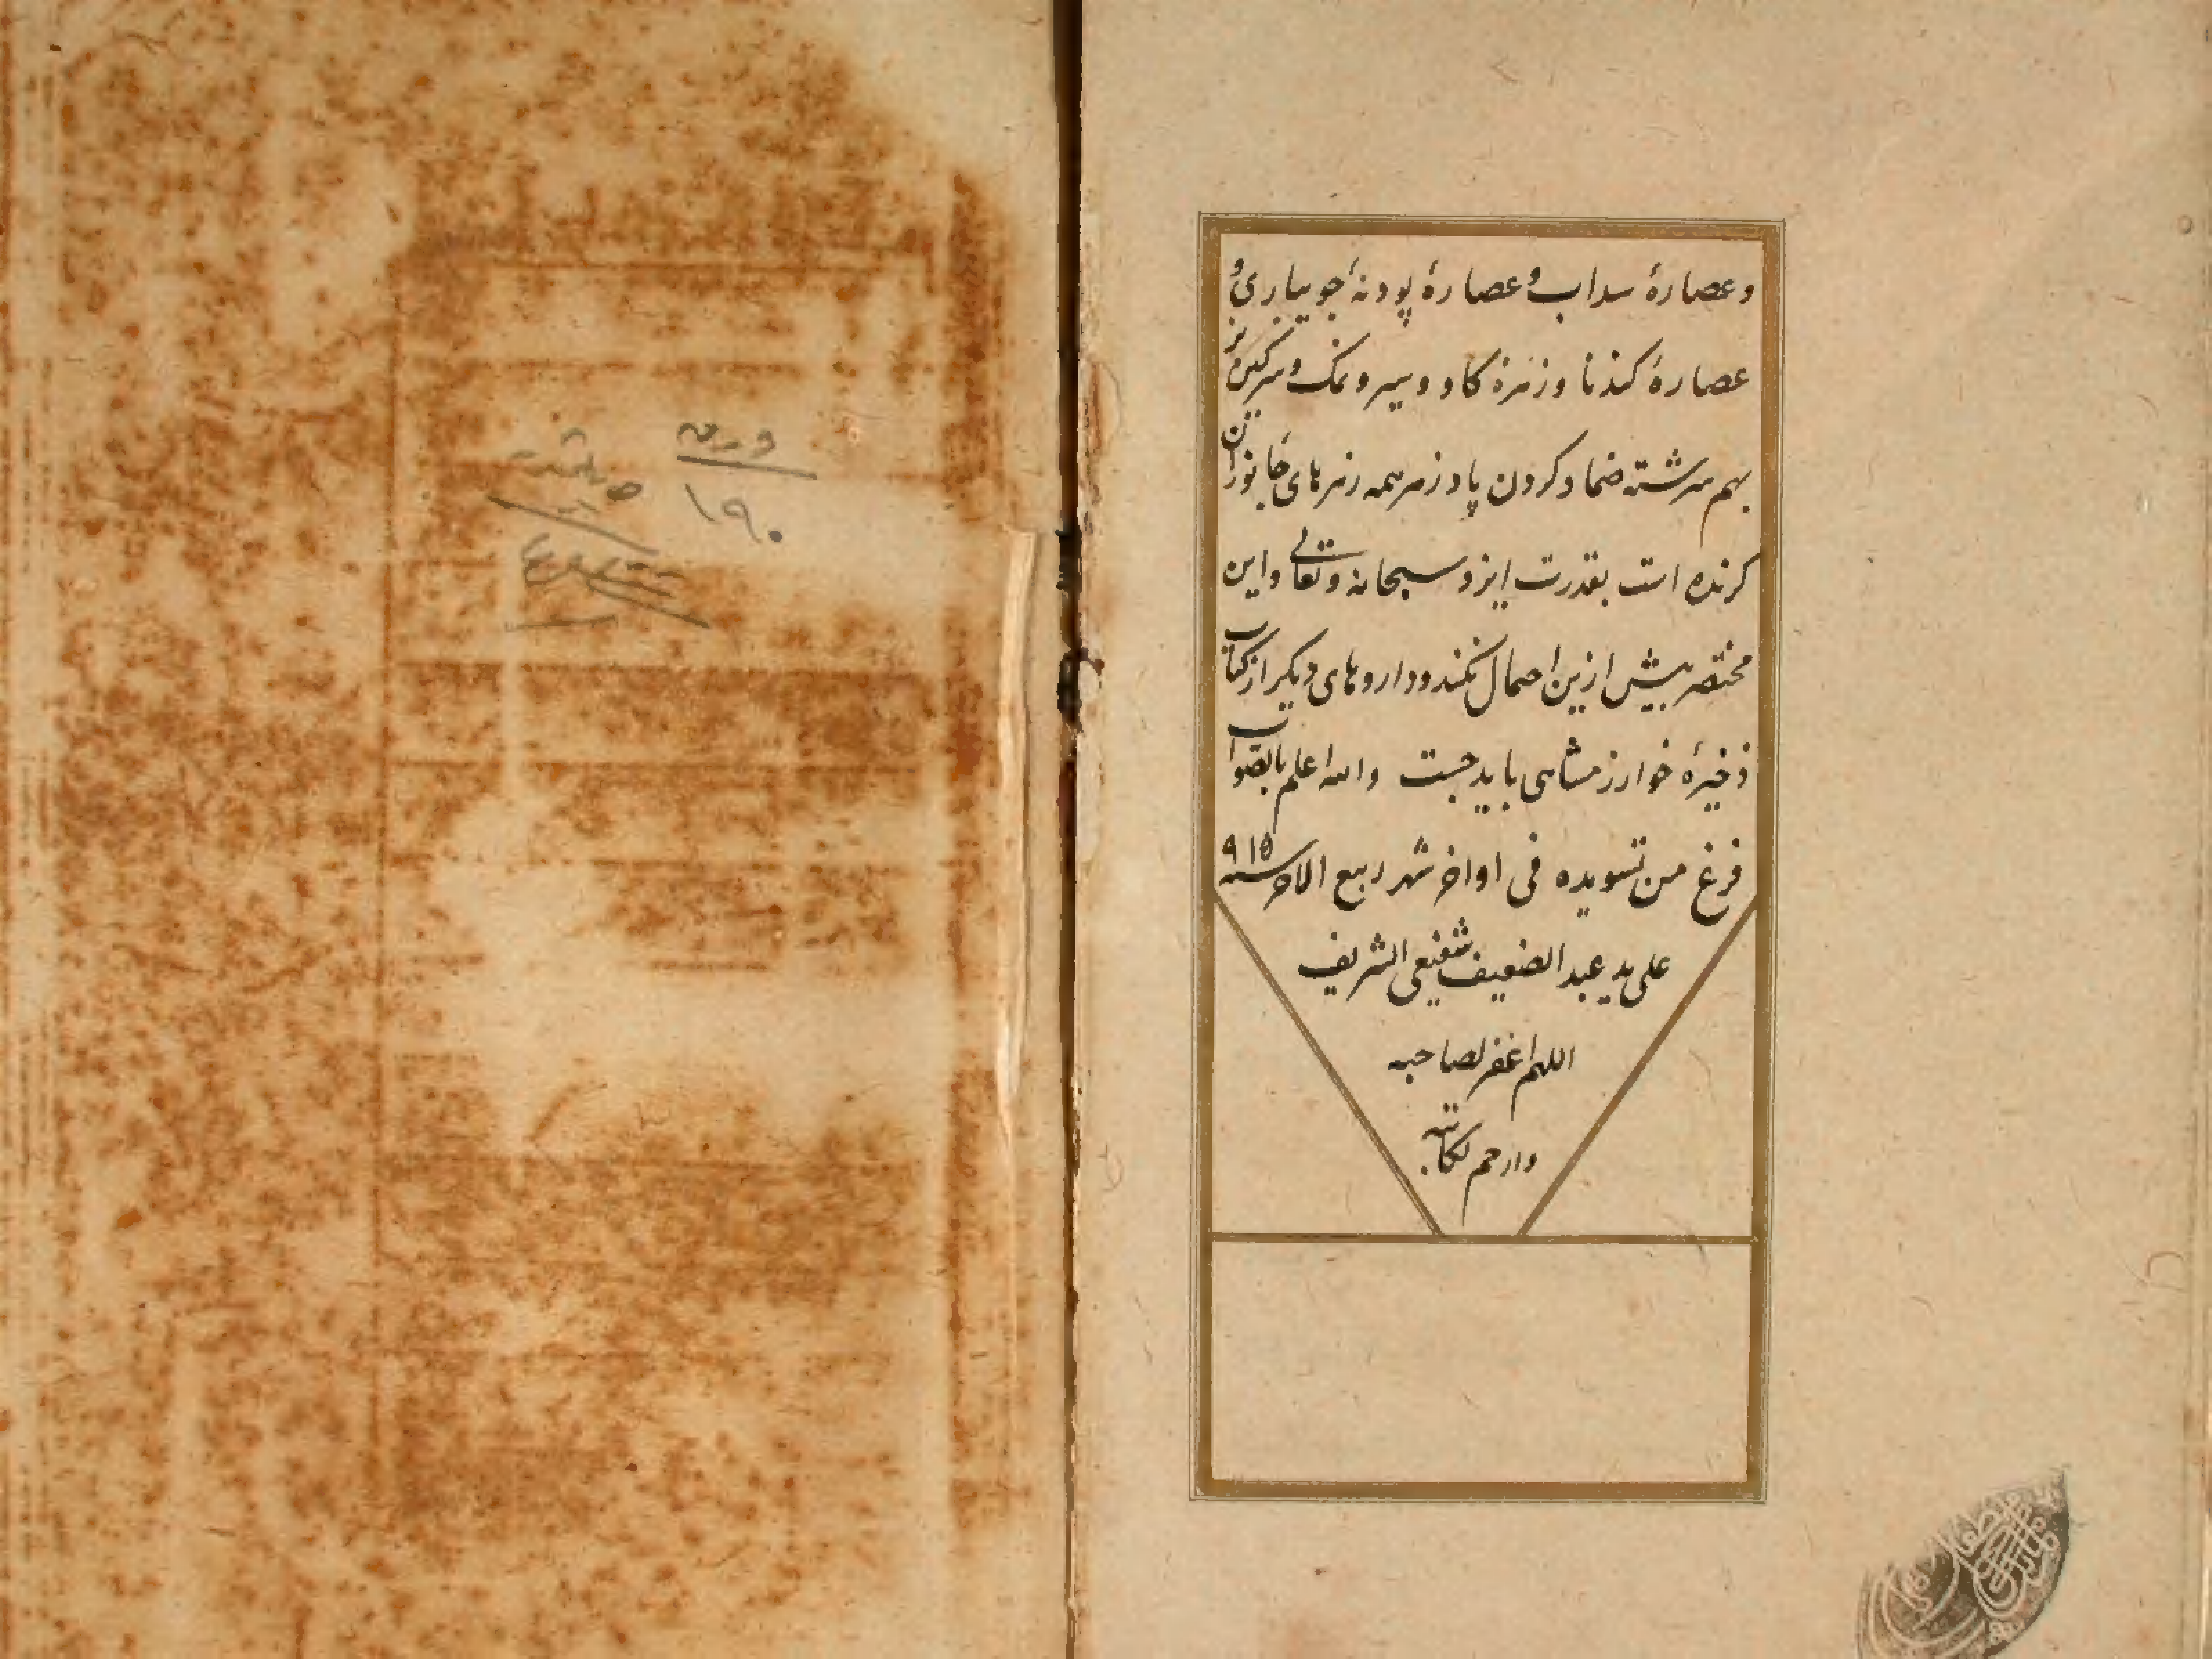 و عصارهٔ سداب و عصارهٔ پودنهٔ جویباری و
عصارهٔ کندنا و زهرهٔ کاو و سیر و نمک و سرکین بز
بهم سرشته ضماد کردن پادزهر همه زهرهای جانوران
کزنده است بقدرت ایزد سبحانه و تعالی و این
مختصر بیش ازین احمال نکند و داروهای دیکر از کتاب
ذخیرهٔ خوارزمشاهی باید جست والله اعلم بالصواب
فرغ من تسویده فی اواخر شهر ربیع الاخر سنه ۹۱۵
علی ید عبد الضعیف شفیعی الشریف
اللهم اغفر لصاحبه
وارحم لکاتبه
ورق
۱۹۰